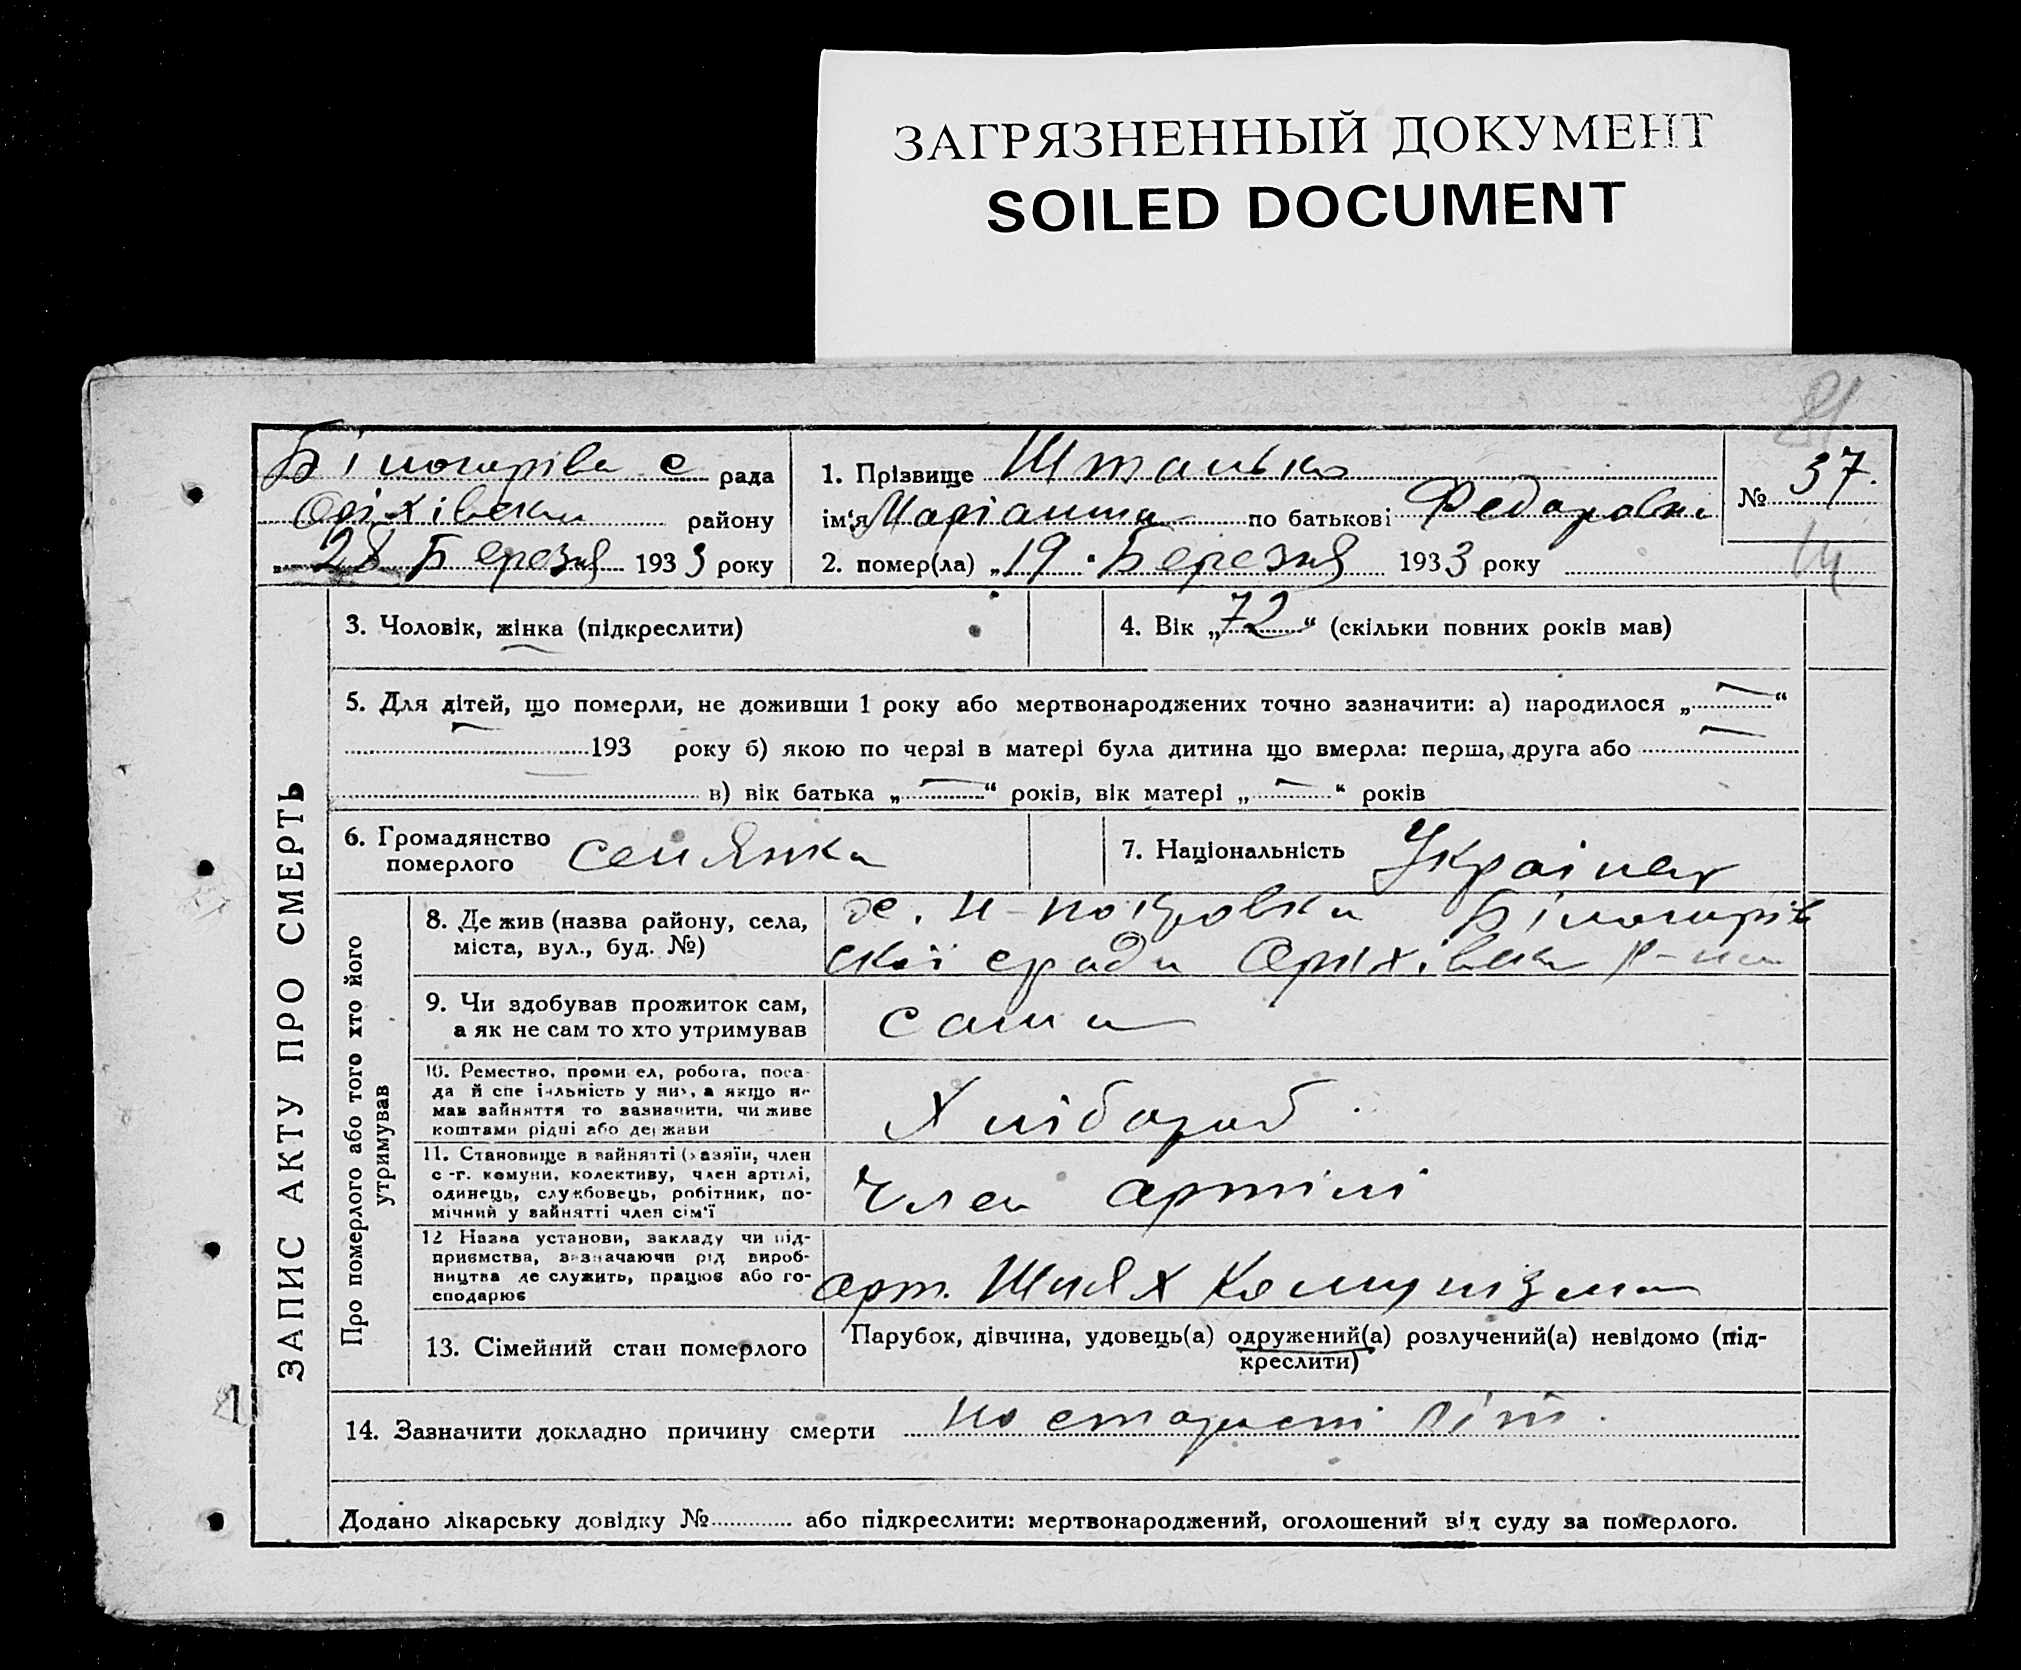 ЗАГРЯЗНЕННЫЙ ДОКУМЕНТ
SOILED DOCUMENT
81
Білогирівс с рада
Оріхівски району
„28 Березня 1933 року
1. Прізвище Штанько
ім'я Маріанни по батькові Федоровни
2. помер(ла) „19. Березня 1933 року
№ 37.
14
ЗАПИС АКТУ ПРО СМЕРТЬ
3. Чоловік, жінка (підкреслити)
4. Вік „72“ (скільки повних років мав)
5. Для дітей, що померли, не доживши 1 року або мертвонароджених точно зазначити: а) народилося „—“
— 193 року б) якою по черзі в матері була дитина що вмерла: перша, друга або —
в) вік батька „—“ років, вік матері „—“ років
6. Громадянство
померлого селянка
7. Національність Українец
Про померлого або того хто його
утримував
8. Де жив (назва району, села,
міста, вул., буд. №)
х. Н-покровка Білогирів
скої сради Оріхівски р-на
9. Чи здобував прожиток сам,
а як не сам то хто утримував
сама
10. Ремество, проми ел, робота, поса-
да й спе іальність у них, а якщо не
мав зайняття то зазначити, чи живе
коштами рідні або держави
Хлібороб
11. Становище в зайнятті (хазяїн, член
с-г. комуни, колективу, член артілі,
одинець, службовець, робітник, по-
мічний у зайнятті член сім'ї
Член артілі
12 Назва установи, закладу чи під-
приємства, зазначаючи рід вироб-
ництва де служить, працює або го-
сподарює
арт. Шлях Комунізма
13. Сімейний стан померлого
Парубок, дівчина, удовець(а) одружений(а) розлучений(а) невідомо (під-
креслити)
14. Зазначити докладно причину смерти по старості літ.
Додано лікарську довідку № або підкреслити: мертвонароджений, оголошений від суду за померлого.